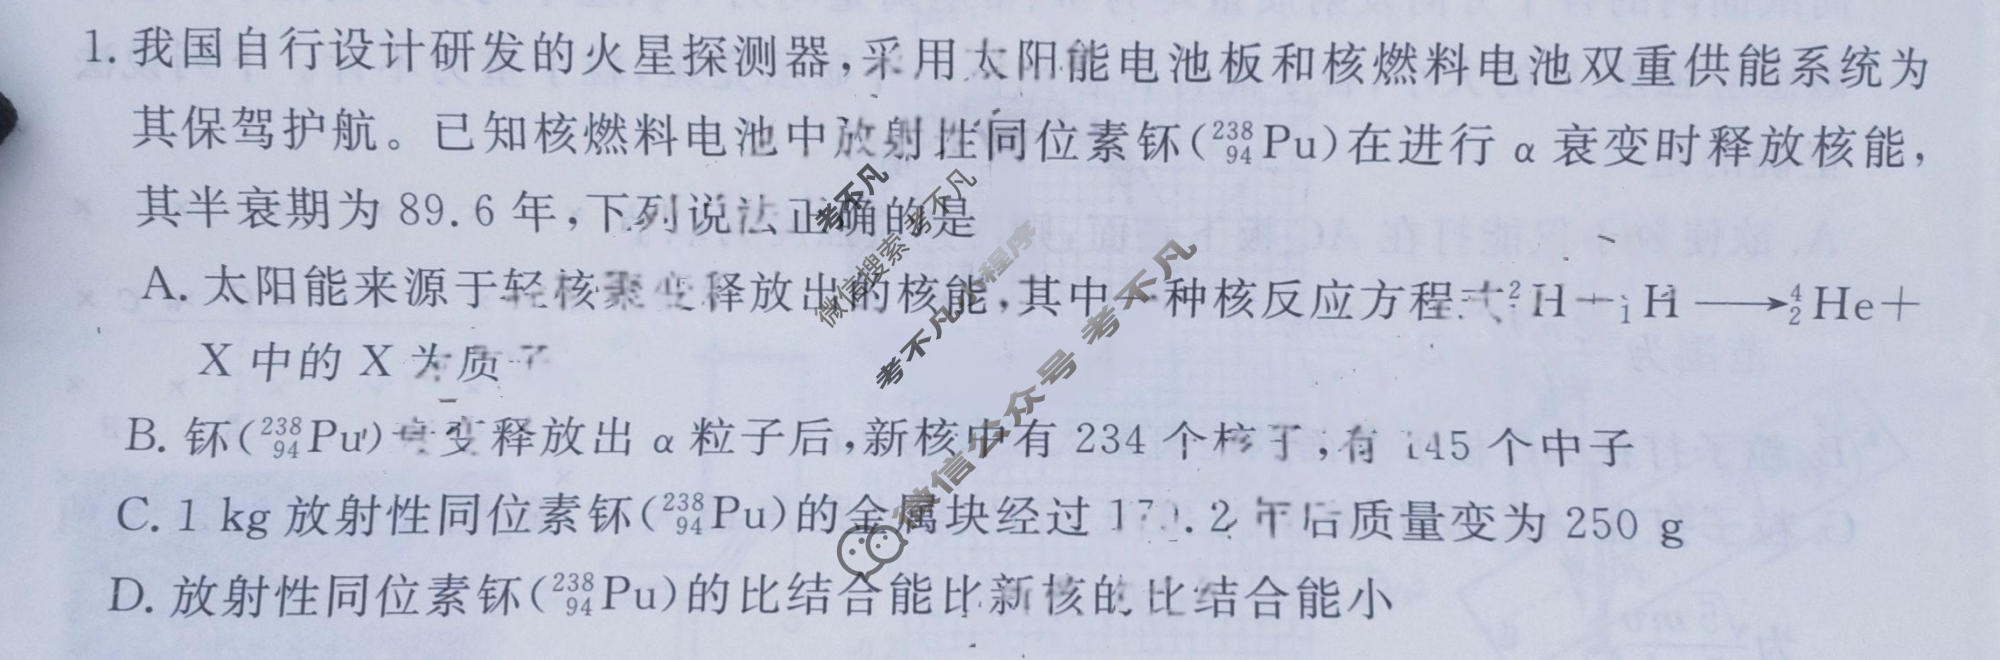 1. 我国自行设计研发的火星探测器,采用太阳能电池板和核燃料电池双重供能系统为
其保驾护航。已知核燃料电池中放射性同位素钚(²³⁸₉₄Pu)在进行 α 衰变时释放核能,
其半衰期为 89.6 年,下列说法正确的是
A. 太阳能来源于轻核聚变释放出的核能,其中一种核反应方程式²₁H+ ₁H ⟶⁴₂He+
X 中的 X 为质子
B. 钚(²³⁸₉₄Pu)衰变释放出 α 粒子后,新核中有 234 个核子,有 145 个中子
C. 1 kg 放射性同位素钚(²³⁸₉₄Pu)的金属块经过 .2 年后质量变为 250 g
D. 放射性同位素钚(²³⁸₉₄Pu)的比结合能比新核的比结合能小
考不凡
微信搜索 考不凡
考不凡小程序
微信公众号 考不凡